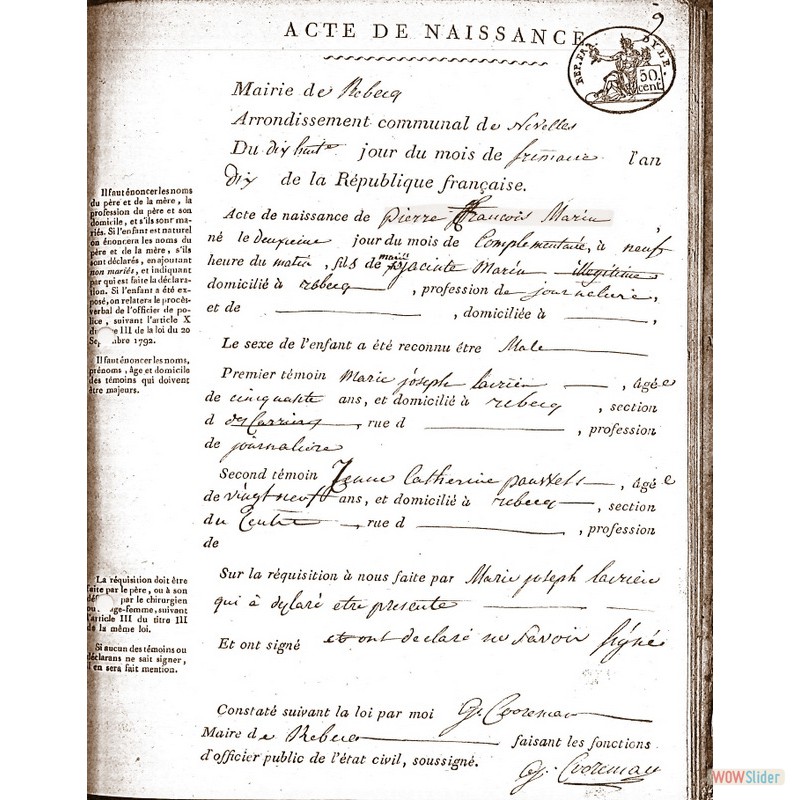 9
ACTE DE NAISSANCE
REP. FRA
50.
cent.
Mairie de Rebecq
Arrondissement communal de Nivelles
Du dix huit jour du mois de frimaire l'an
dix de la République française.
Il faut énoncer les noms
du père et de la mère, la
profession du père et son
domicile, et s'ils sont ma-
riés. Si l'enfant est naturel
on énoncera les noms du
père et de la mère, s'ils
sont déclarés, en ajoutant
non mariés, et indiquant
par qui est faite la déclara-
tion. Si l'enfant a été ex-
posé, on relatera le procès-
verbal de l'officier de po-
lice, suivant l'article X
du III de la loi du 20
Sep bre 1792.
Acte de naissance de pierre François Marin,
né le deuxieme jour du mois de Complementaire, à neuf
heure du matin, fils de marie hyacinte Marin illegitime
domicilié à rebecq, profession de journaliere,
et de , domiciliée à ,
Le sexe de l'enfant a été reconnu être Male
Il faut énoncer les noms,
prénoms, âge et domicile
des témoins qui doivent
être majeurs.
Premier témoin Marie joseph , âgé e
de cinquante ans, et domicilié à rebecq, section
d es Carrieres, rue d , profession
de journaliere
Second témoin Jenne Catherine , âgé e
de vingt neuf ans, et domicilié à rebecq, section
du Centre, rue d , profession
de
La réquisition doit être
faite par le père, ou à son
dé par le chirurgien
ou ge-femme, suivant
l'article III du titre III
de la même loi.
Sur la réquisition à nous faite par Marie joseph
qui à dylaré etre presente
Si aucun des témoins ou
déclarans ne sait signer,
il en sera fait mention.
Et ont signé et ont declaré ne Savoir signé
Constaté suivant la loi par moi G. Cooreman
Maire de Rebecq faisant les fonctions
d'officier public de l'état civil, soussigné.
G. Cooreman
WOWSlider